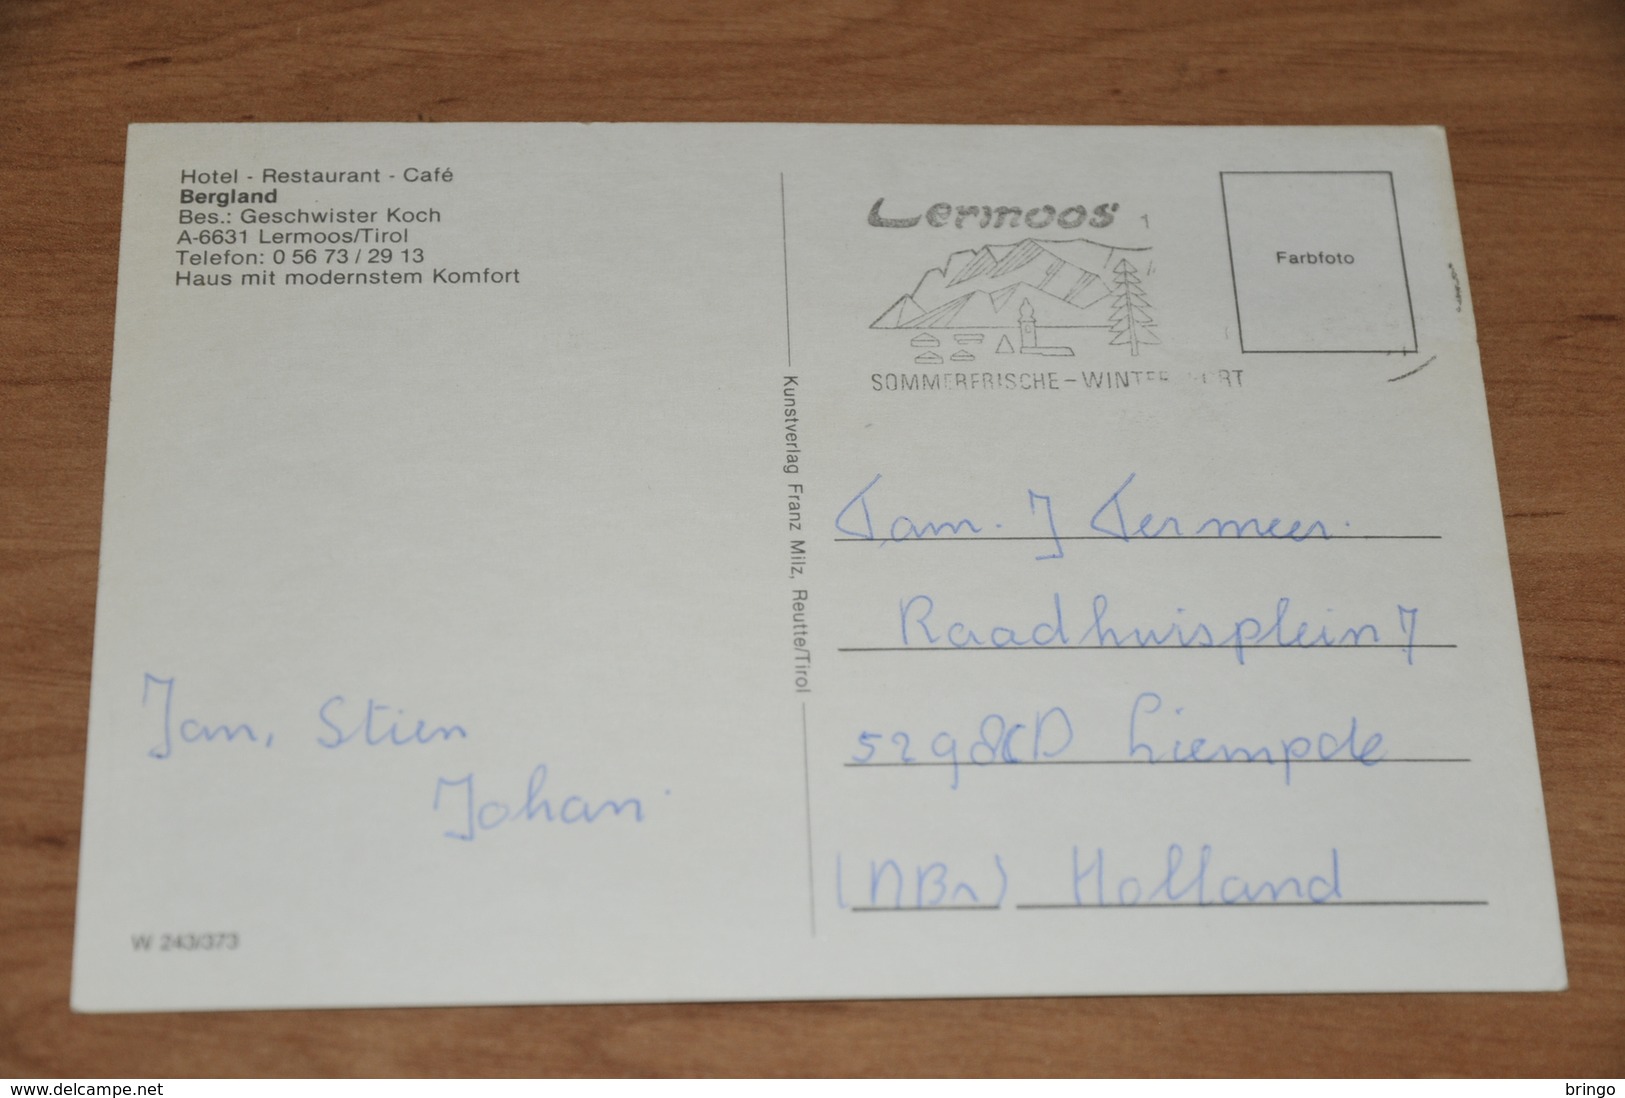 Hotel - Restaurant - Café
Bergland
Bes.: Geschwister Koch
A-6631 Lermoos/Tirol
Telefon: 0 56 73 / 29 13
Haus mit modernstem Komfort
Jan, Stien
Johan.
W 243/373
Kunstverlag Franz Milz, Reutte/Tirol
Lermoos
1
SOMMERFRISCHE - WINTE
RT
Farbfoto
Fam. J Termeer.
Raadhuisplein 7
5298CD Liempde
(NBr) Holland
www.delcampe.net
bringo